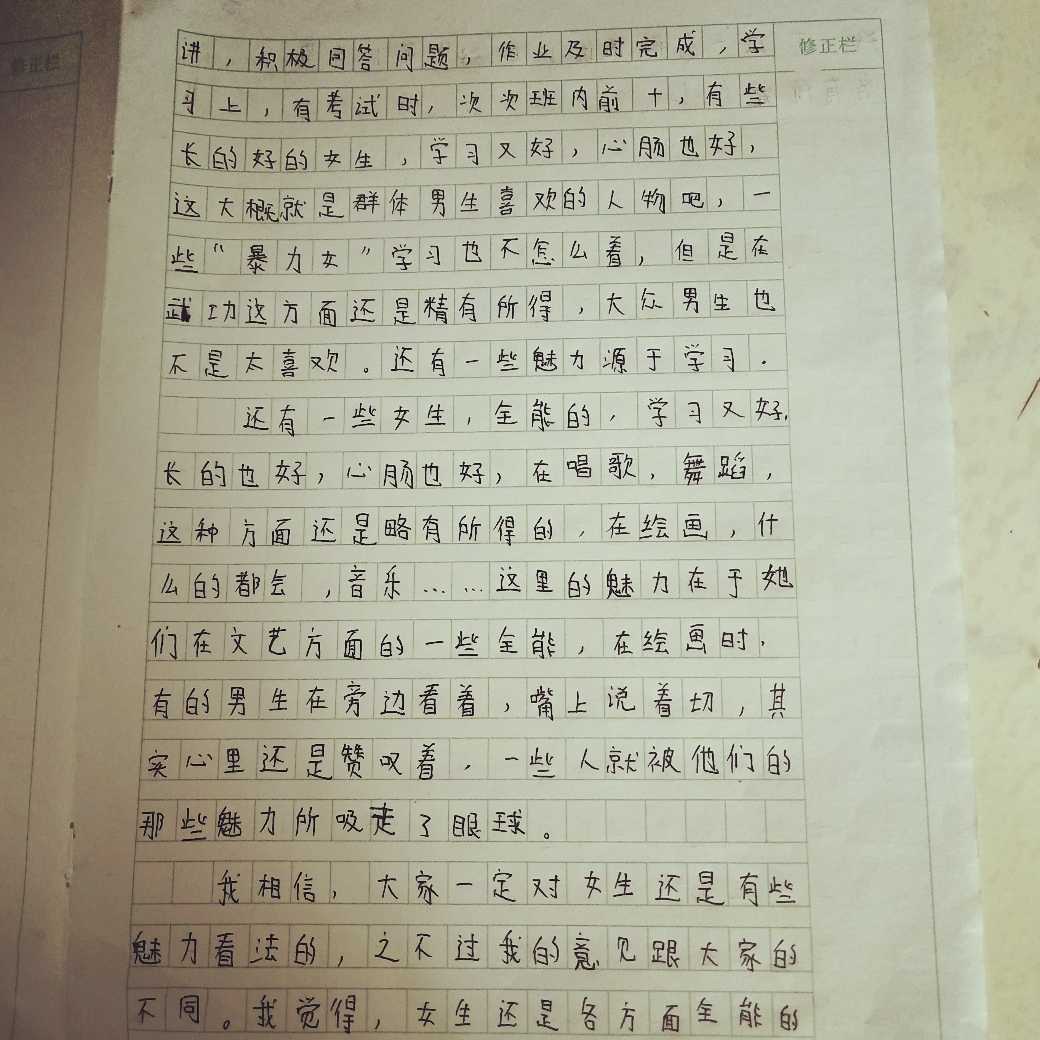 讲，积极回答问题，作业及时完成，学
修正栏
修正栏
习上，有考试时，次次班内前十，有些
长的好的女生，学习又好，心肠也好，
这大概就是群体男生喜欢的人物吧，一
些“暴力女”学习也不怎么着，但是在
武功这方面还是精有所得，大众男生也
不是太喜欢。还有一些魅力源于学习.
还有一些女生，全能的，学习又好.
长的也好，心肠也好，在唱歌，舞蹈，
这种方面还是略有所得的，在绘画，什
么的都会，音乐……这里的魅力在于她
们在文艺方面的一些全能，在绘画时.
有的男生在旁边看着，嘴上说着切，其
实心里还是赞叹着，一些人就被他们的
那些魅力所吸走了眼球。
我相信，大家一定对女生还是有些
魅力看法的，之不过我的意见跟大家的
不同。我觉得，女生还是各方面全能的